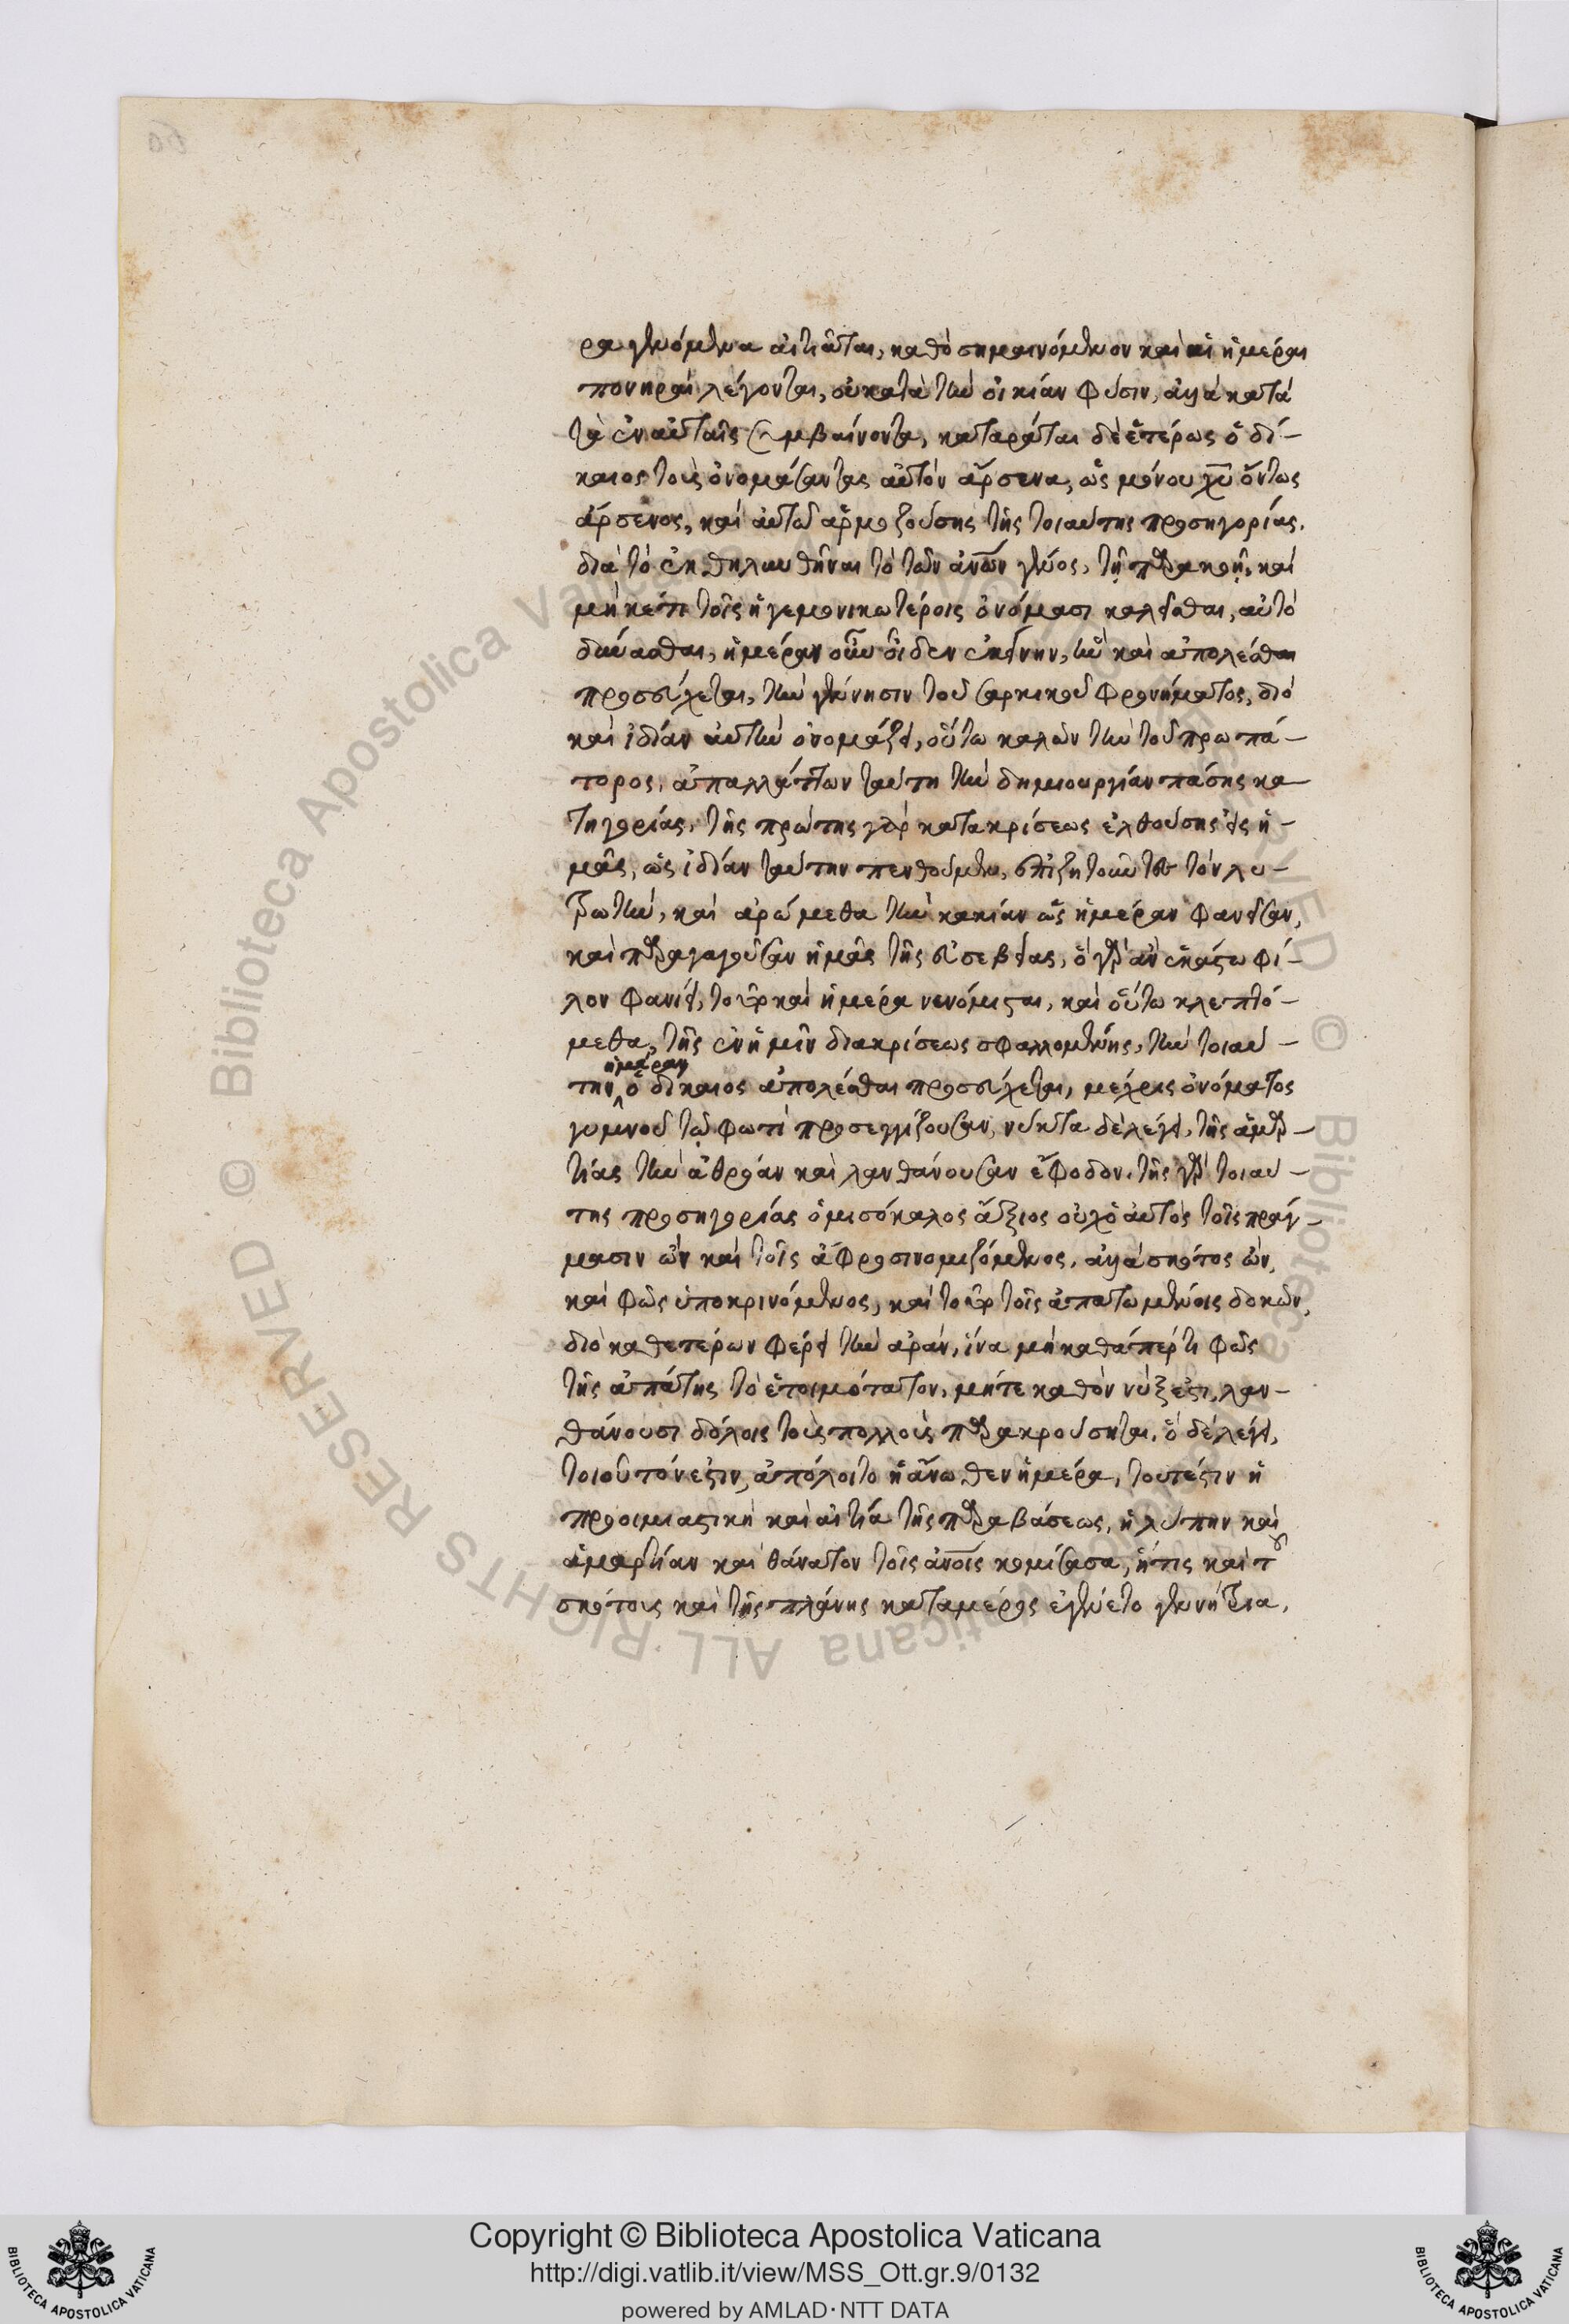 ρα γενόμενα αἰτιᾶται, καθὸ σημαινόμενον καὶ αἱ ἡμέραι
πονηραὶ λέγονται, οὐ κατὰ τὴν οἰκίαν φύσιν, ἀλλὰ κατὰ
τὰ ἐν αὐταῖς συμβαίνοντα, καταρᾶται δὲ ἑτέρως ὁ δί-
καιος τοὺς ὀνομάσαντας αὐτὸν ἄρσενα, ὡς μόνου χυ ὄντως
ἄρσενος, καὶ αὐτῷ ἁρμοζούσης τῆς τοιαύτης προσηγορίας.
διὰ τὸ ἐκθηλυνθῆναι τὸ τῶν ἀνων γένος, τῇ παρακοῇ, καὶ
μηκέτι τοῖς ἡγεμονικωτέροις ὀνόμασι καλεῖσθαι, αὐτὸ
δύνασθαι, ἡμέραν οὖν οἶδεν ἐκείνην, ἣν καὶ ἀπολέσθαι
προσεύχεται, τὴν γέννησιν τοῦ σαρκικοῦ φρονήματος, διὸ
καὶ ἰδίαν αὐτὴν ὀνομάζει, οὕτω καλῶν τὴν τοῦ προπά-
τορος, ἀπαλλάττων ταύτη τὴν δημιουργίαν πάσης κα
τηγορίας, τῆς πρώτης γὰρ κατακρίσεως ἐλθούσης εἰς ἡ-
μᾶς, ὡς ἰδίαν ταύτην πενθοῦμεν, ἐπιζητοῦντες τὸν λυ-
τρωτὴν, καὶ ἀρώμεθα τὴν κακίαν ὡς ἡμέραν φανεῖσαν,
καὶ παραγαγοῦσαν ἡμᾶς τῆς εὐσεβείας, ὃ γὰρ ἂν ἑκάστω φί-
λον φανείη, τοῦτο καὶ ἡμέρα νενόμισται, καὶ οὕτω κλεπτό-
μεθα, τῆς ἐν ἡμῖν διακρίσεως σφαλλομένης, τὴν τοιαύ-
την ἡμέραν ὁ δίκαιος ἀπολέσθαι προσεύχεται, μέχρις ὀνόματος
γυμνοῦ τῷ φωτὶ προσεγγίζουσαν, νύκτα δὲ λέγει, τῆς ἁμαρ-
τίας τὴν ἀθρόαν καὶ λανθάνουσαν ἔφοδον. τῆς γὰρ τοιαύ-
της προσηγορίας ὁ μισόκαλος ἄξιος οὐχ ὁ αὐτὸς τοῖς πράγ-
μασιν ὢν καὶ τοῖς ἄφροσι νομιζόμενος, ἀλλὰ σκότος ὢν,
καὶ φῶς ὑποκρινόμενος, καὶ τοῦτο τοῖς ἀπατωμένοις δοκῶν,
διὸ καθετέρων φέρει τὴν ἀρὰν, ἵνα μὴ καθάπέρ τι φῶς
τῆς ἀπάτης τὸ ἑτοιμότατον, μήτε καθὸν νύξ ἐστι, λαν-
θάνουσι δόλοις τοὺς πολλοὺς παρακρούσηται, ὃ δὲ λέγει,
τοιοῦτόν ἐστιν, ἀπόλοιτο ἡ ἄνωθεν ἡμέρα, τουτέστιν ἡ
προοιμιαστικὴ καὶ αἰτία τῆς παραβάσεως, ἡ λύπην καὶ
ἁμαρτίαν καὶ θάνατον τοῖς ἀνοις κομίσασα, ἥτις καὶ τοῦ
σκότους καὶ τῆς πλάνης καταμέρος ἐγένετο γεννήτρια,